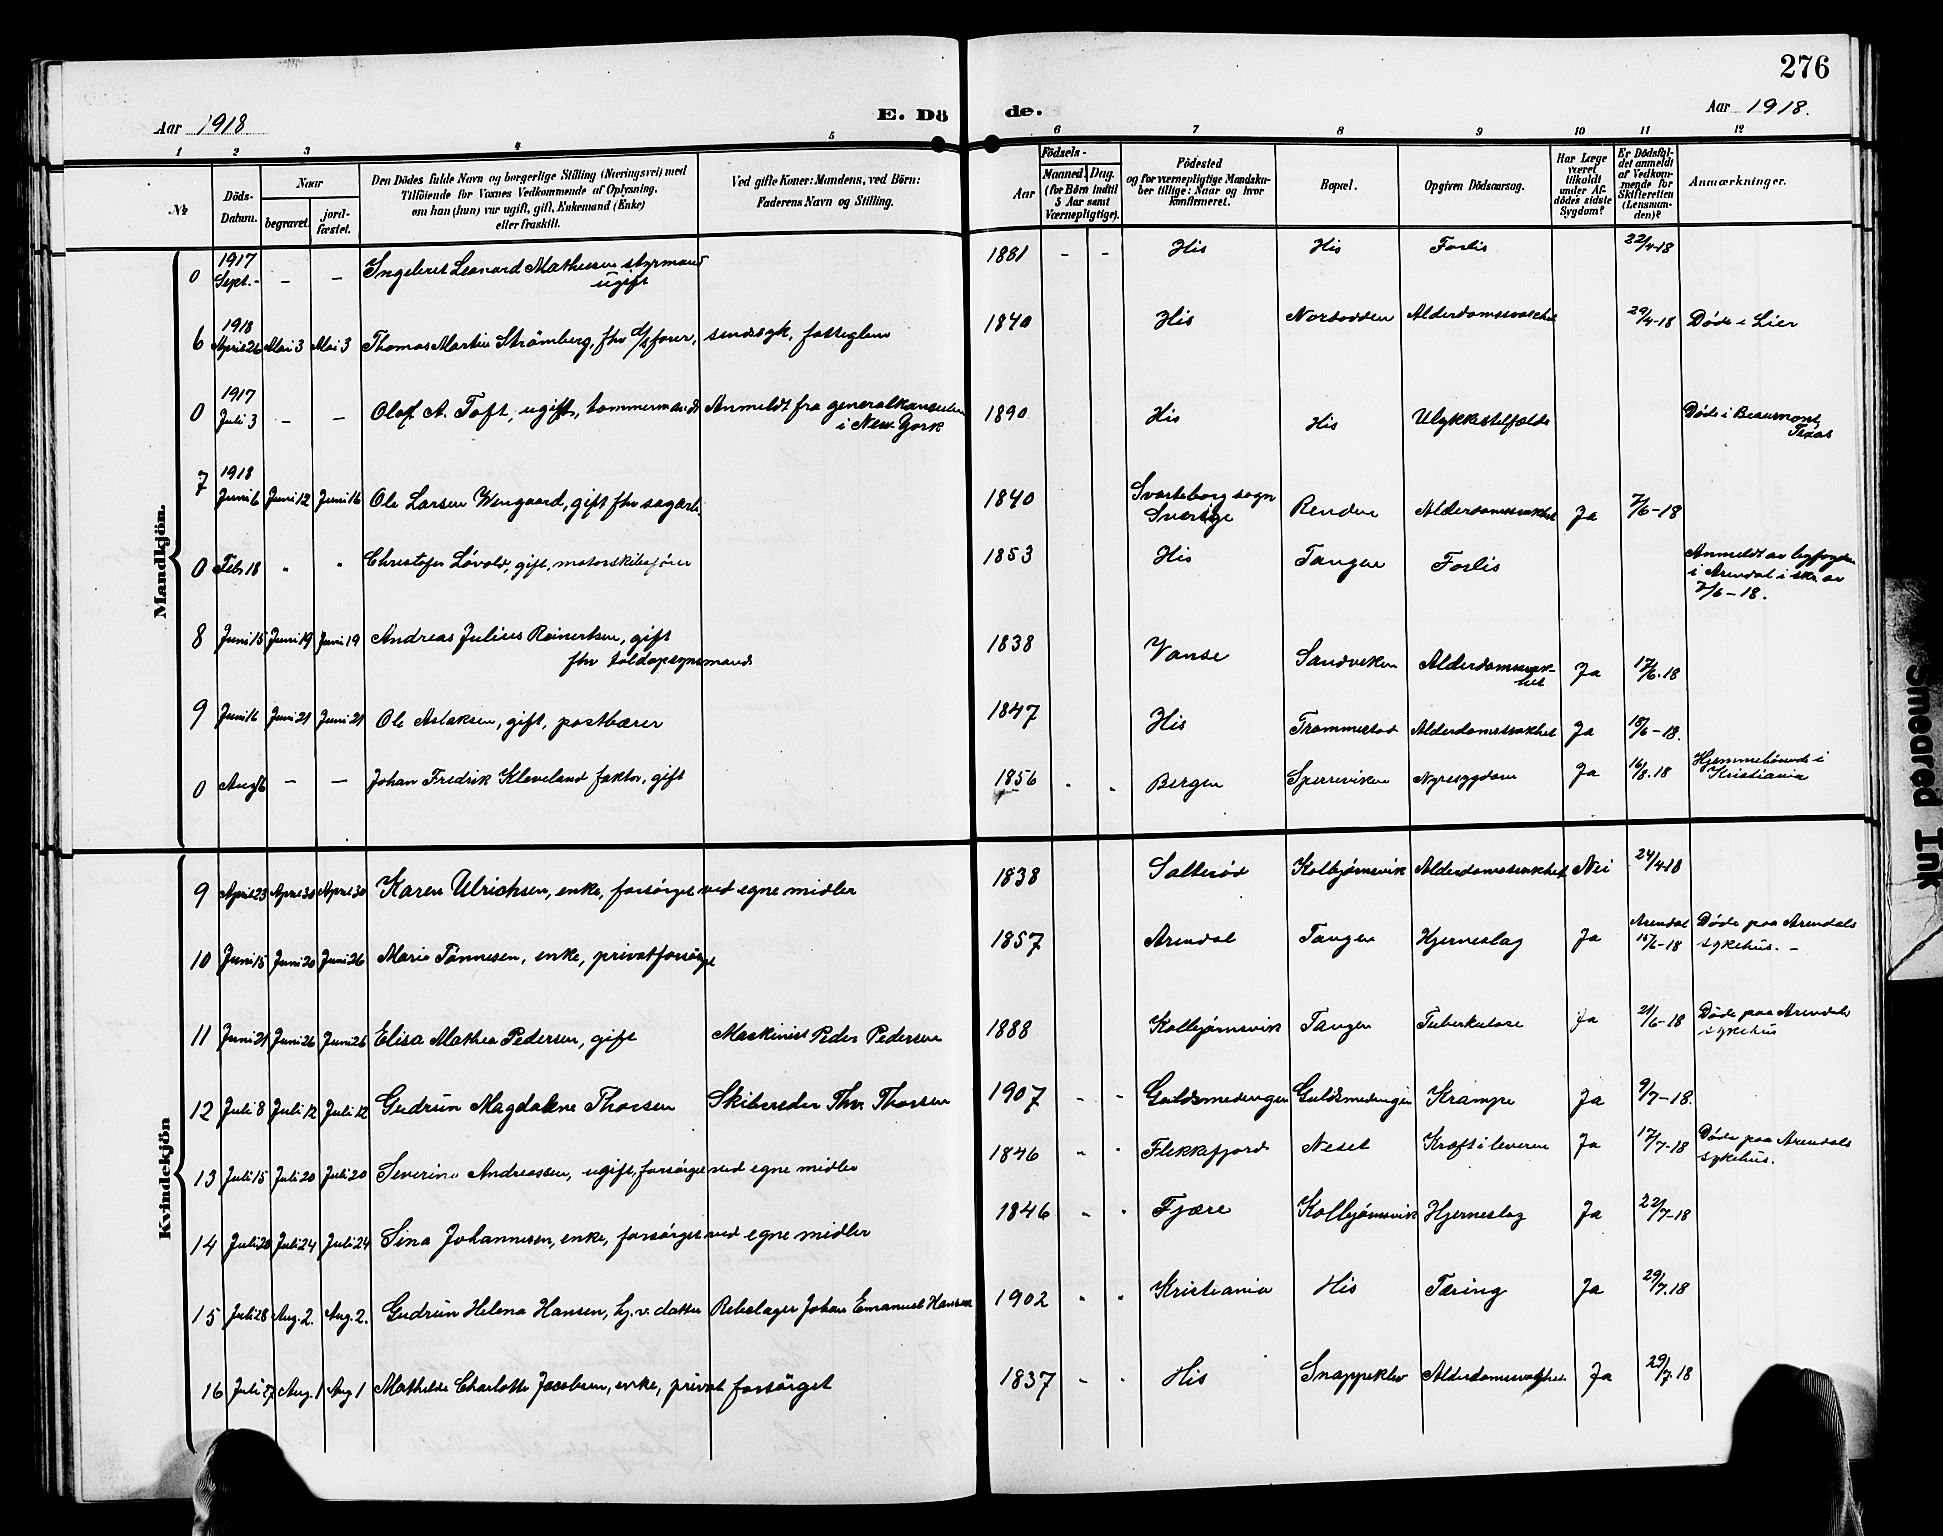 276
Aar 1918
E. Dö
de.
Aar 1918.
1 2 3 4 5 6 7 8 9 10 11 12
№
Döds-Datum.
Naar
begravet. jord-fæstet.
Den Dödes fulde Navn og borgerlige Stilling (Næringsvei) med
Tilföiende for Voxnes Vedkommende af Oplysning,
om han (hun) var ugift, gift, Enkemand (Enke)
eller fraskilt.
Ved gifte Koner: Mandens, ved Börn:
Faderens Navn og Stilling.
Födsels-
Aar Maaned. Dag.
(for Börn indtil
5 Aar samt
Værnepligtige).
Födested
og for værnepligtige Mandska-
ber tillige: Naar og hvor
konfirmeret.
Bopæl.
Opgiven Dödsaarsag.
Har Læge
været
tilkaldt
under Af-
dödes sidste
Sygdom?
Er Dödsfal-
det anmeldt
af Vedkom-
mende for
Skifteretten
(Lensman-
den)?
Anmærkninger.
Mandkjön.
0 1917 Sept. - - - Ingebret Leonard Mathesen styrmand ugift 1881 - - His His Forlis 22/4-18
6 1918 April 26 Mai 3 Mai 3 Thomas Martin Strömberg, fhv. s/s fører, sindssyk, fattiglem 1840 His Nordodden Alderdomssvakhet 29/4-18 Døde i Lier
0 1917 Juli 3 - - Olaf A. Toft, ugift, tømmermand Anmeldt fra generalkonsulen i New York 1890 His His Ulykkestilfælde Døde i Beaumont, Texas
7 1918 Juni 6 Juni 12 Juni 16 Ole Larsen Wengaard, gift fhv sagarb. 1840 Svarteborg sogn Sverige Renden Alderdomssvakhet Ja 7/6-18
0 Feb 18 " " Christofer Løvold, gift, motorskibsfører 1853 His Tangen Forlis Anmeldt av byfogden i Arendal i skr. av 7/6-18.
8 Juni 15 Juni 19 Juni 19 Andreas Julius Reinertsen, gift fhv toldopsynsmand 1838 Vanse Sandviken Alderdomssvakhet Ja 17/6-18
9 Juni 16 Juni 21 Juni 21 Ole Aslaksen, gift, postbærer 1847 His Trommestad Alderdomssvakhet Ja 18/6-18.
0 Aug 6 - - Johan Fredrik Kleveland faktor, gift 1856 " " Bergen Sperreviken Nyresygdom Ja 16/8-18 Hjemmehørende i Kristiania
Kvindekjön
9 April 23 April 30 April 30 Karen Ulrichsen, enke, forsørget ved egne midler 1838 Salterød Kolbjørnsvik Alderdomssvakhet Nei 24/4-18
10 Juni 15 Juni 20 Juni 26 Marie Tönnesen, enke, privat forsørget 1857 Arendal Tangen Hjerneslag Ja Arendal 15/6-18 Døde paa Arendals sykehus. -
11 Juni 21 Juni 26 Juni 26 Elisa Mathea Pedersen, gift Maskinist Peder Pedersen 1888 Kolbjørnsvik Tangen Tuberkulose Ja 21/6-18 Døde paa Arendals sykehus
12 Juli 8 Juli 12 Juli 12 Gudrun Magdalene Thorsen Skibsreder Thv. Thorsen 1907 - - Guldsmedengen Guldsmedengen Krampe Ja 9/7-18.
13 Juli 15 Juli 20 Juli 20 Severine Andreassen, ugift, forsørget ved egne midler 1846 " " Flekkefjord Neset Kræft i leveren Ja 17/7-18 Døde paa Arendals sykehus.
14 Juli 20 Juli 24 Juli 24 Sina Johannesen, enke, forsørget ved egne midler 1846 " " Fjære Kolbjørnsvik Hjerneslag Ja 22/7-18
15 Juli 28 Aug. 2. Aug. 2. Gudrun Helena Hansen, hj.v. datter Rebslager Johan Emanuel Hansen 1902 " " Kristiania His Tæring Ja 29/7-18
16 Juli 27 Aug. 1 Aug 1 Mathilde Charlotte Jacobsen, enke, privat forsørget 1837 - " His Snappeklev Alderdomssvakhet Ja 29/7-18
Smeared Ink